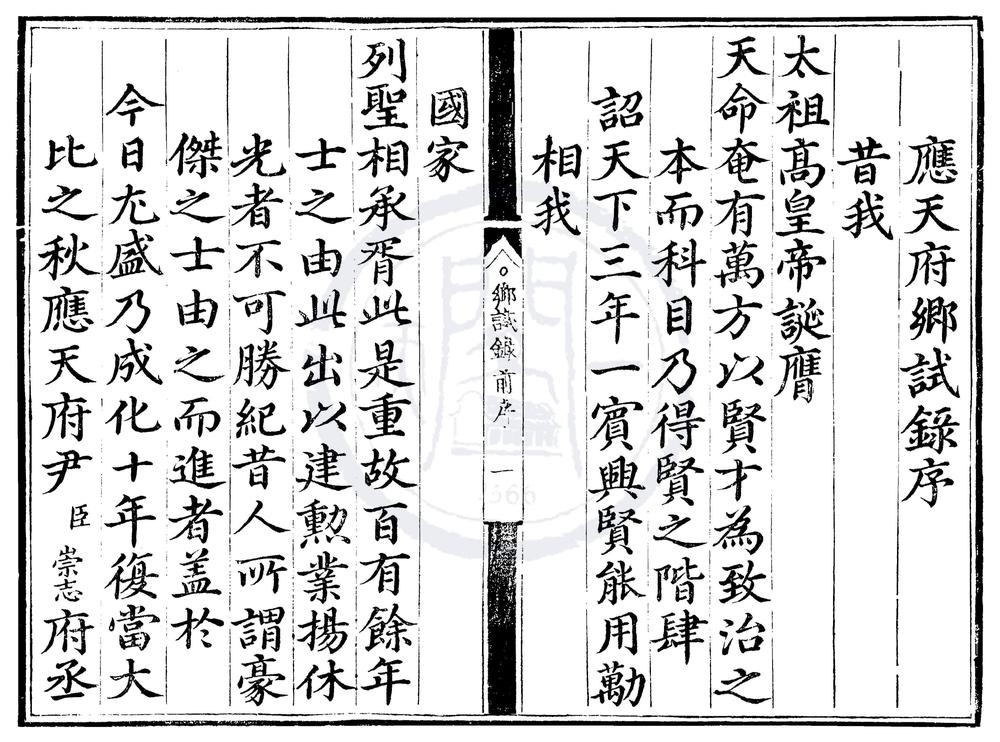 應天府鄉試錄序
昔我
太祖高皇帝誕膺
天命奄有萬方以賢才為致治之
本而科目乃得賢之階肆
詔天下三年一賓興賢能用勱
相我
鄉試錄前序 一
國家
列聖相承胥此是重故百有餘年
士之由此出以建勲業揚休
光者不可勝紀昔人所謂豪
傑之士由之而進者盖於
今日尤盛乃成化十年復當大
比之秋應天府尹臣崇志府丞